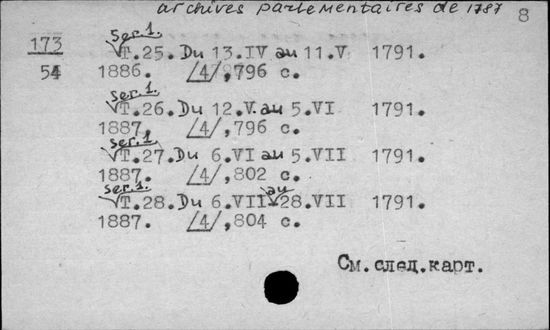 archives parlementaires de 1787
8
173
54
ser. 1.
√T.25. Du 13.IV au 11.V 1791.
1886. /4/,796 с.
ser. 1.
√T.26. Du 12.V.au 5.VI 1791.
1887. /4/,796 с.
ser. 1.
√T.27. Du 6.VI au 5.VII 1791.
1887. /4/,802 с.
ser. 1.
√T.28. Du 6.VII au 28.VII 1791.
1887. /4/,804 с.
См.след.карт.